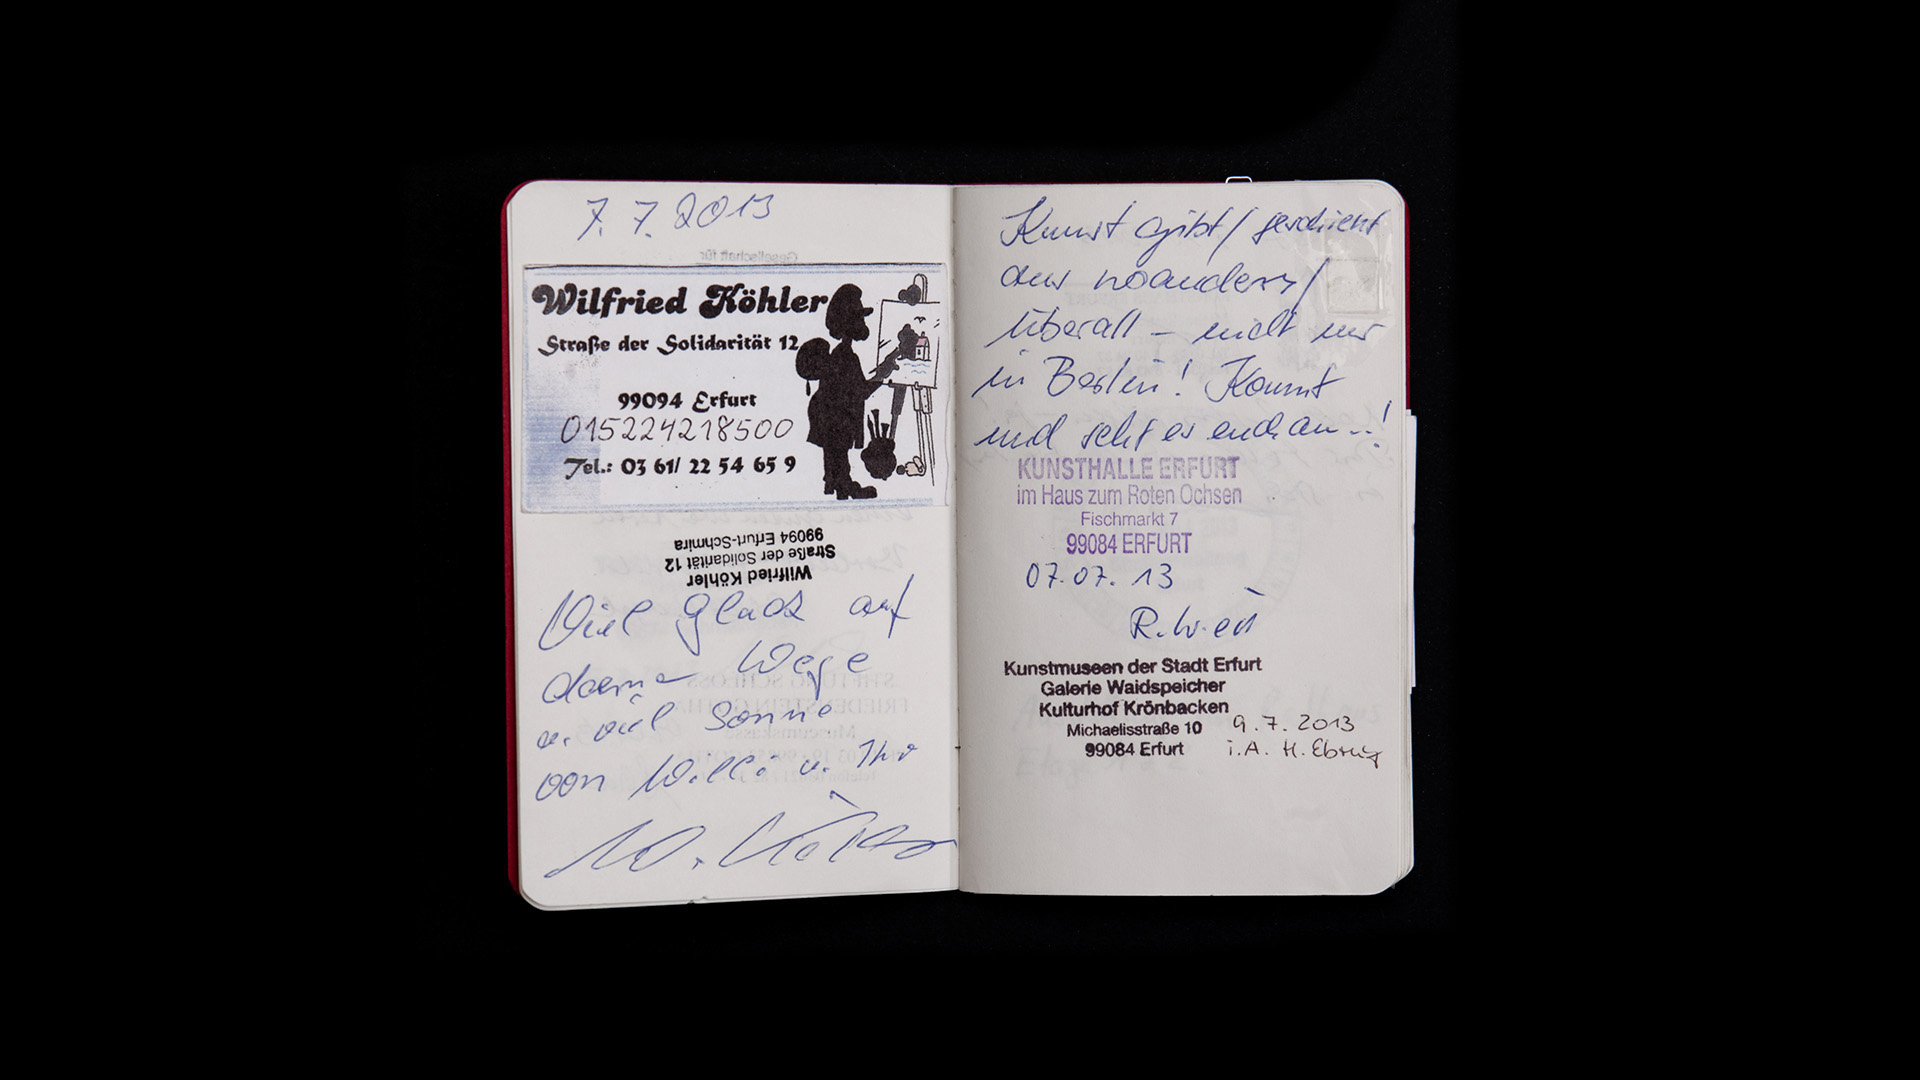 7. 7. 2013
Gesellschaft für
Wilfried Köhler
Straße der Solidarität 12
99094 Erfurt
015224218500
Tel.: 03 61/ 22 54 65 9
Wilfried Köhler
Straße der Solidarität 12
99094 Erfurt-Schmira
Viel Glück auf
Wege
u. viel Sonne
von Willi u. Ihr
W. Köhler
Kunst gibt / geschieht
aus woanders /
überall – nicht nur
in Berlin! Kommt
und seht es euch an..!
KUNSTHALLE ERFURT
im Haus zum Roten Ochsen
Fischmarkt 7
99084 ERFURT
07.07. 13
Kunstmuseen der Stadt Erfurt
Galerie Waidspeicher
Kulturhof Krönbacken
Michaelisstraße 10
9.7.2013
99084 Erfurt
i.A. H.